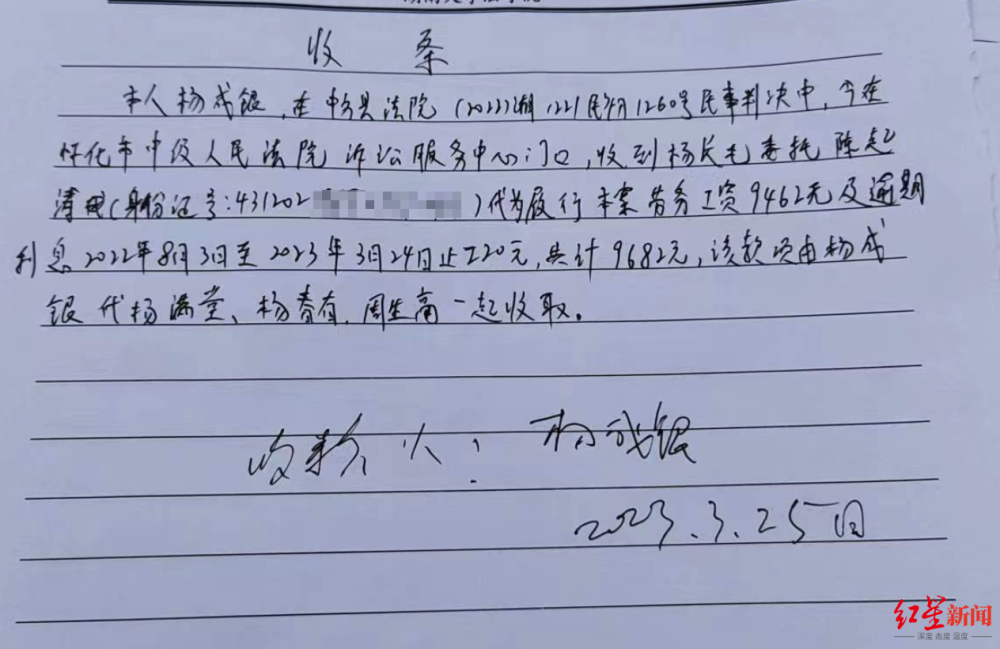 收 条
本人杨成银,在中方县法院(2022)湘1221民初1260号民事判决中,今在
怀化市中级人民法院诉讼服务中心门口,收到杨长毛委托陈起
(身份证号:431202 )代为履行本案劳务工资9462元及逾期
利息2022年8月3日至2023年3月24日止220元,共计9682元,该款项由杨成
银代杨满堂、杨春有、周生高一起收取。
收款人:杨成银
2023.3.25日
红星新闻
深度 态度 温度